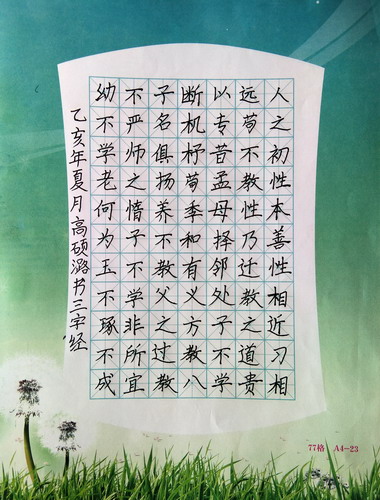 人之初性本善性相近习相
远苟不教性乃迁教之道贵
以专昔孟母择邻处子不学
断机杼荀季和有义方教八
子名俱扬养不教父之过教
不严师之惰子不学非所宜
幼不学老何为玉不琢不成
乙亥年夏月高硕潞书三字经
77格 A4-23